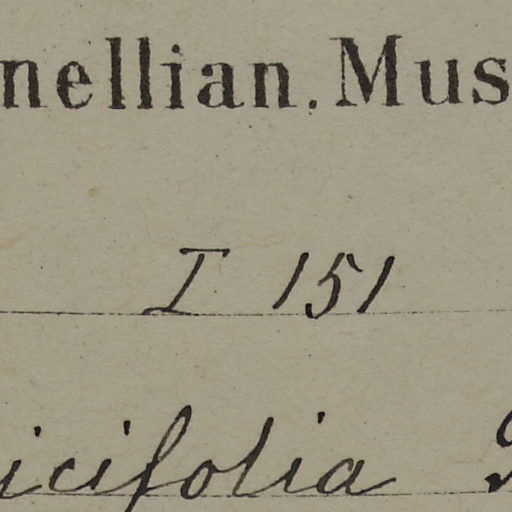 nellian. Mus
I 151
icifolia